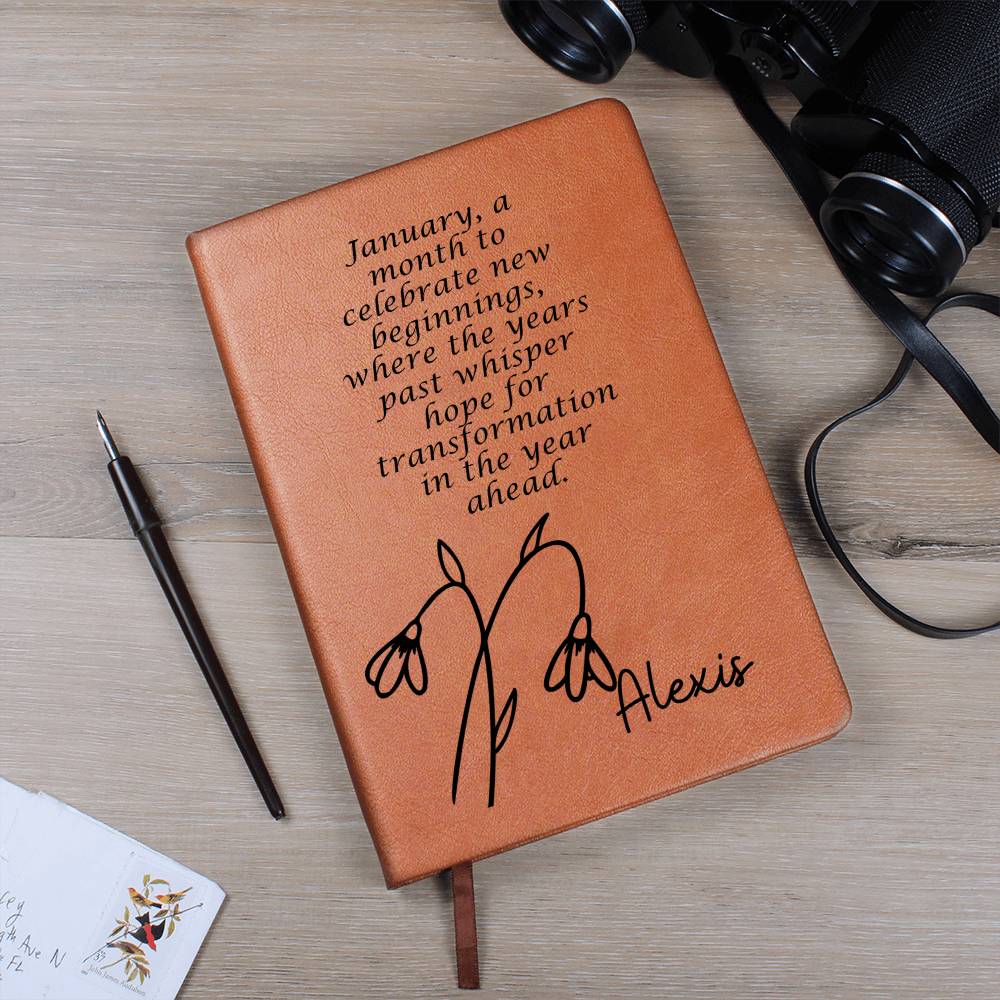 January, a
month to
celebrate new
beginnings,
where the years
past whisper
hope for
transformation
in the year
ahead.
Alexis
ey
9th Ave N
FL
37
John James Audubon